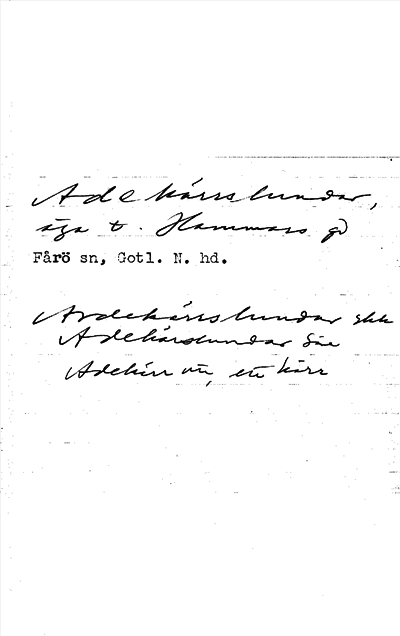 Adekärrslundar,
äga t. Hammars gd
Fårö sn, Gotl. N. hd.
Ardekärrslundar skk
Adekärrslundar
Adekärr ett kärr